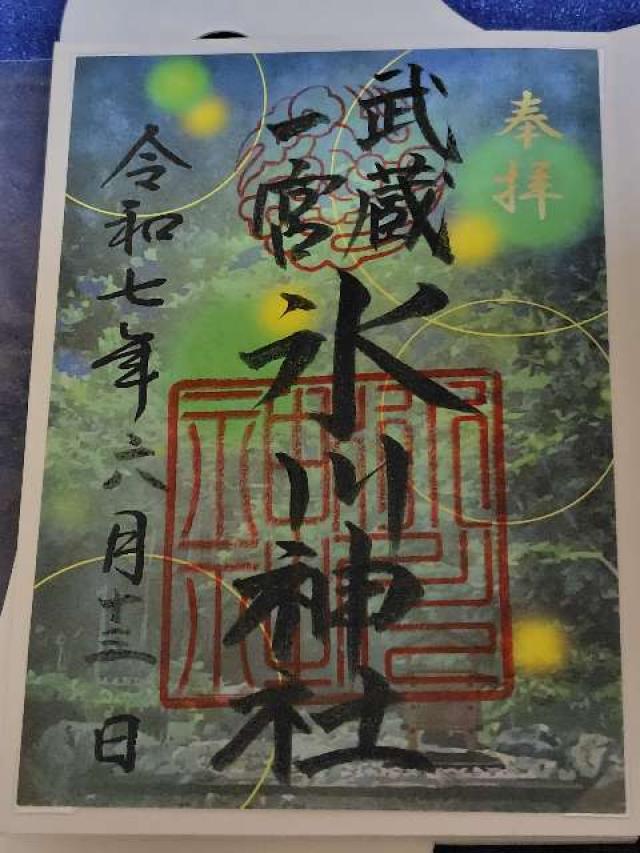 奉拝
武蔵
一宮
氷川神社
令和七年六月十三日